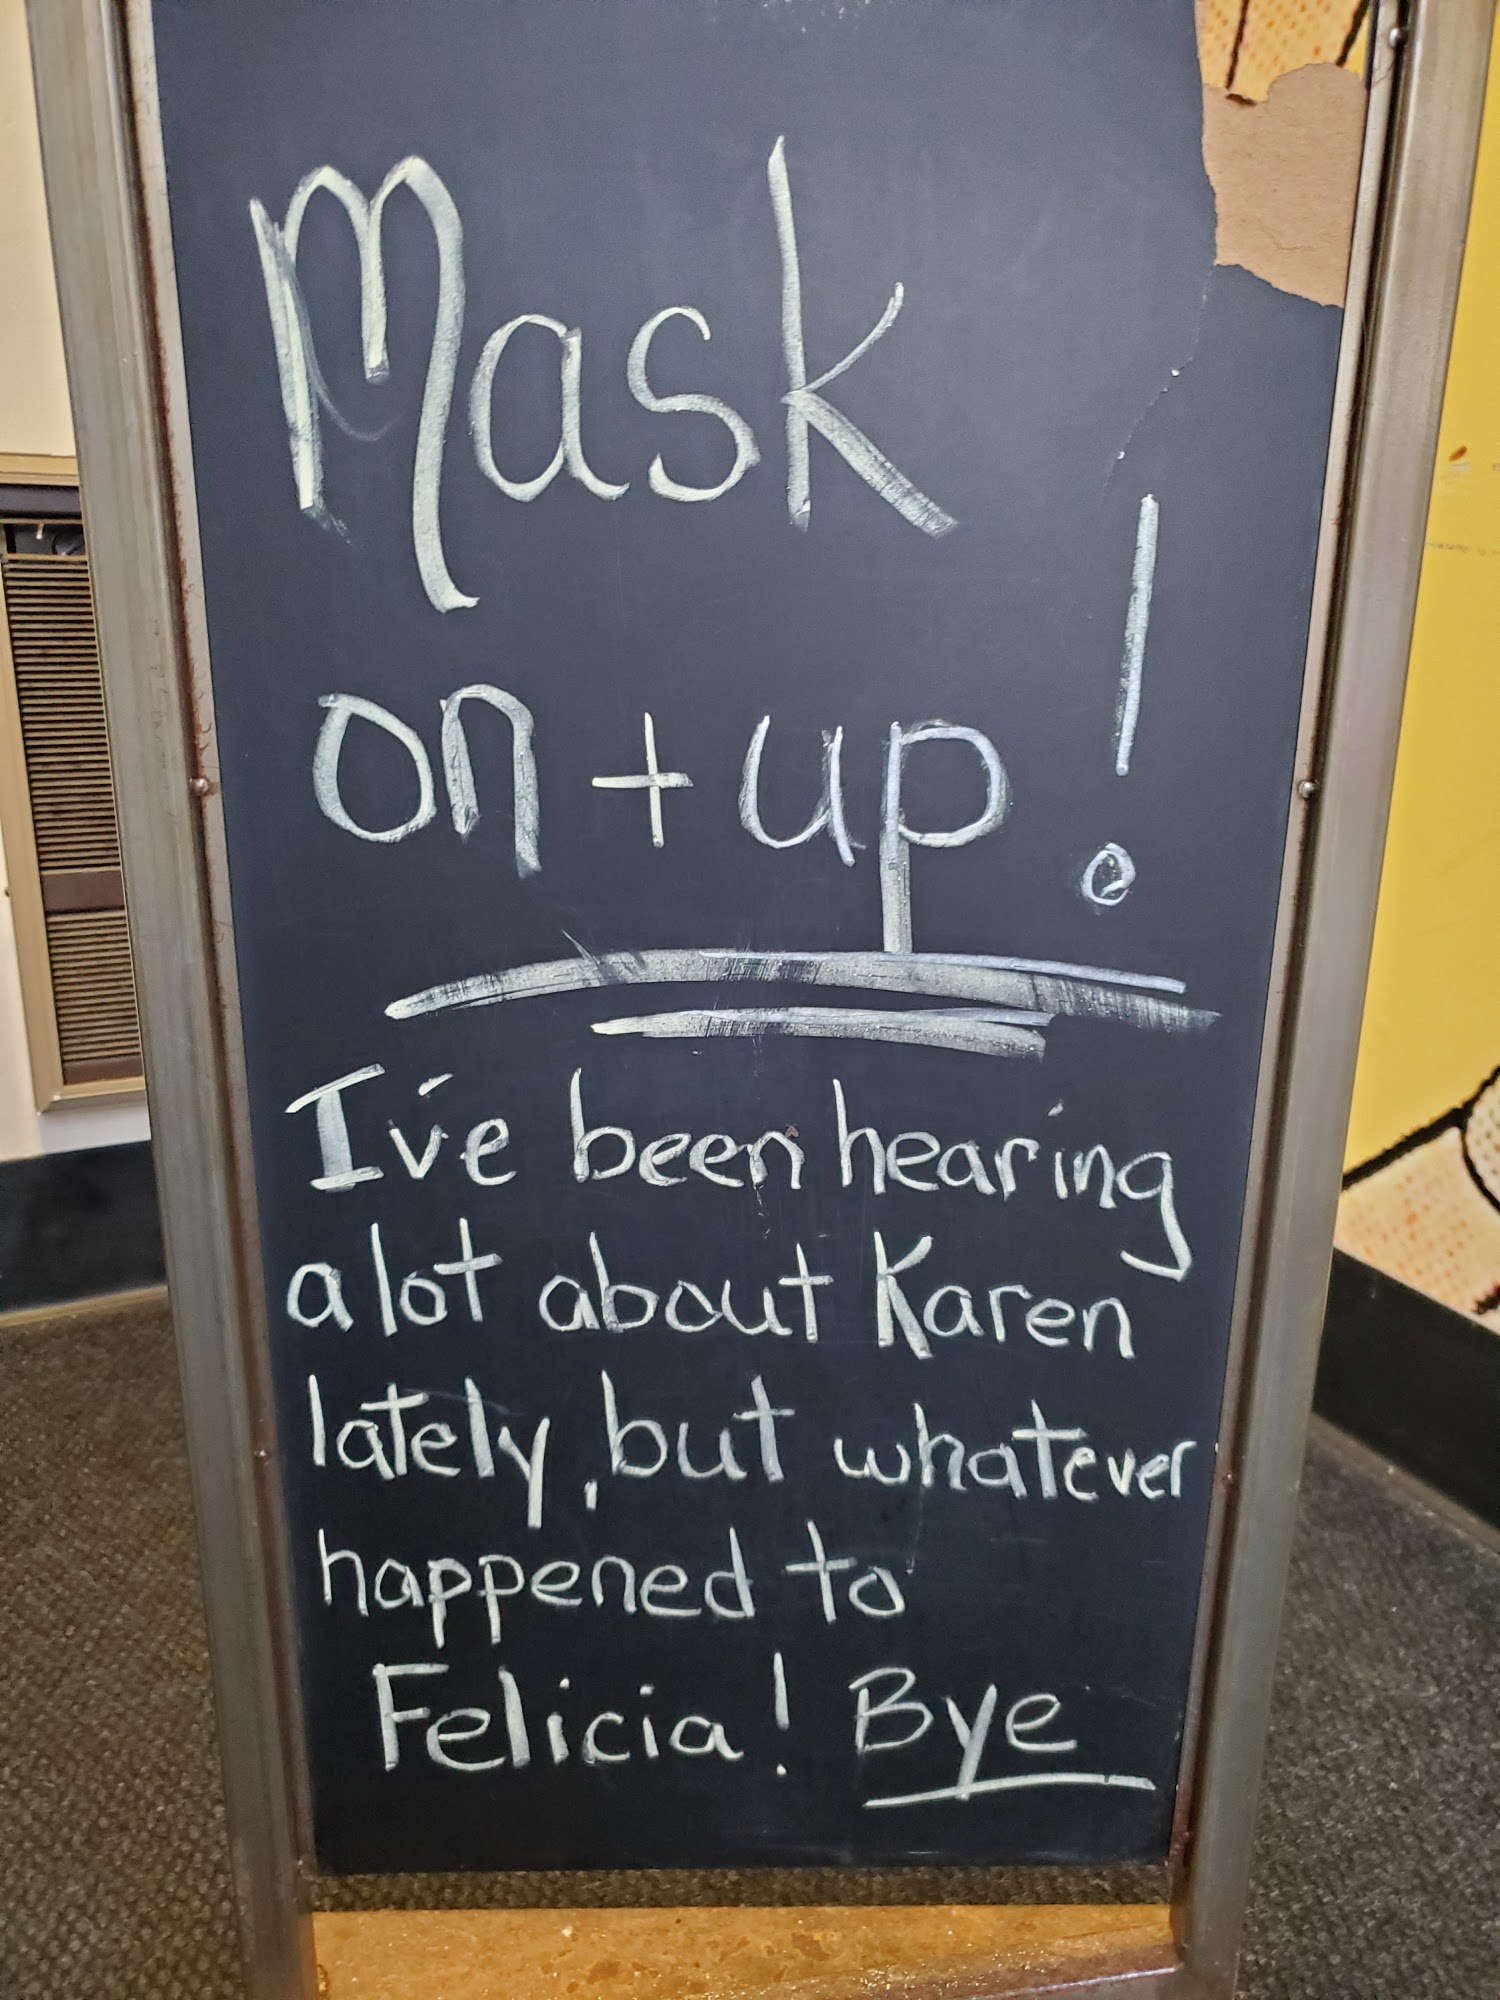 Mask
on + up!
I've been hearing
a lot about Karen
lately, but whatever
happened to
Felicia! Bye